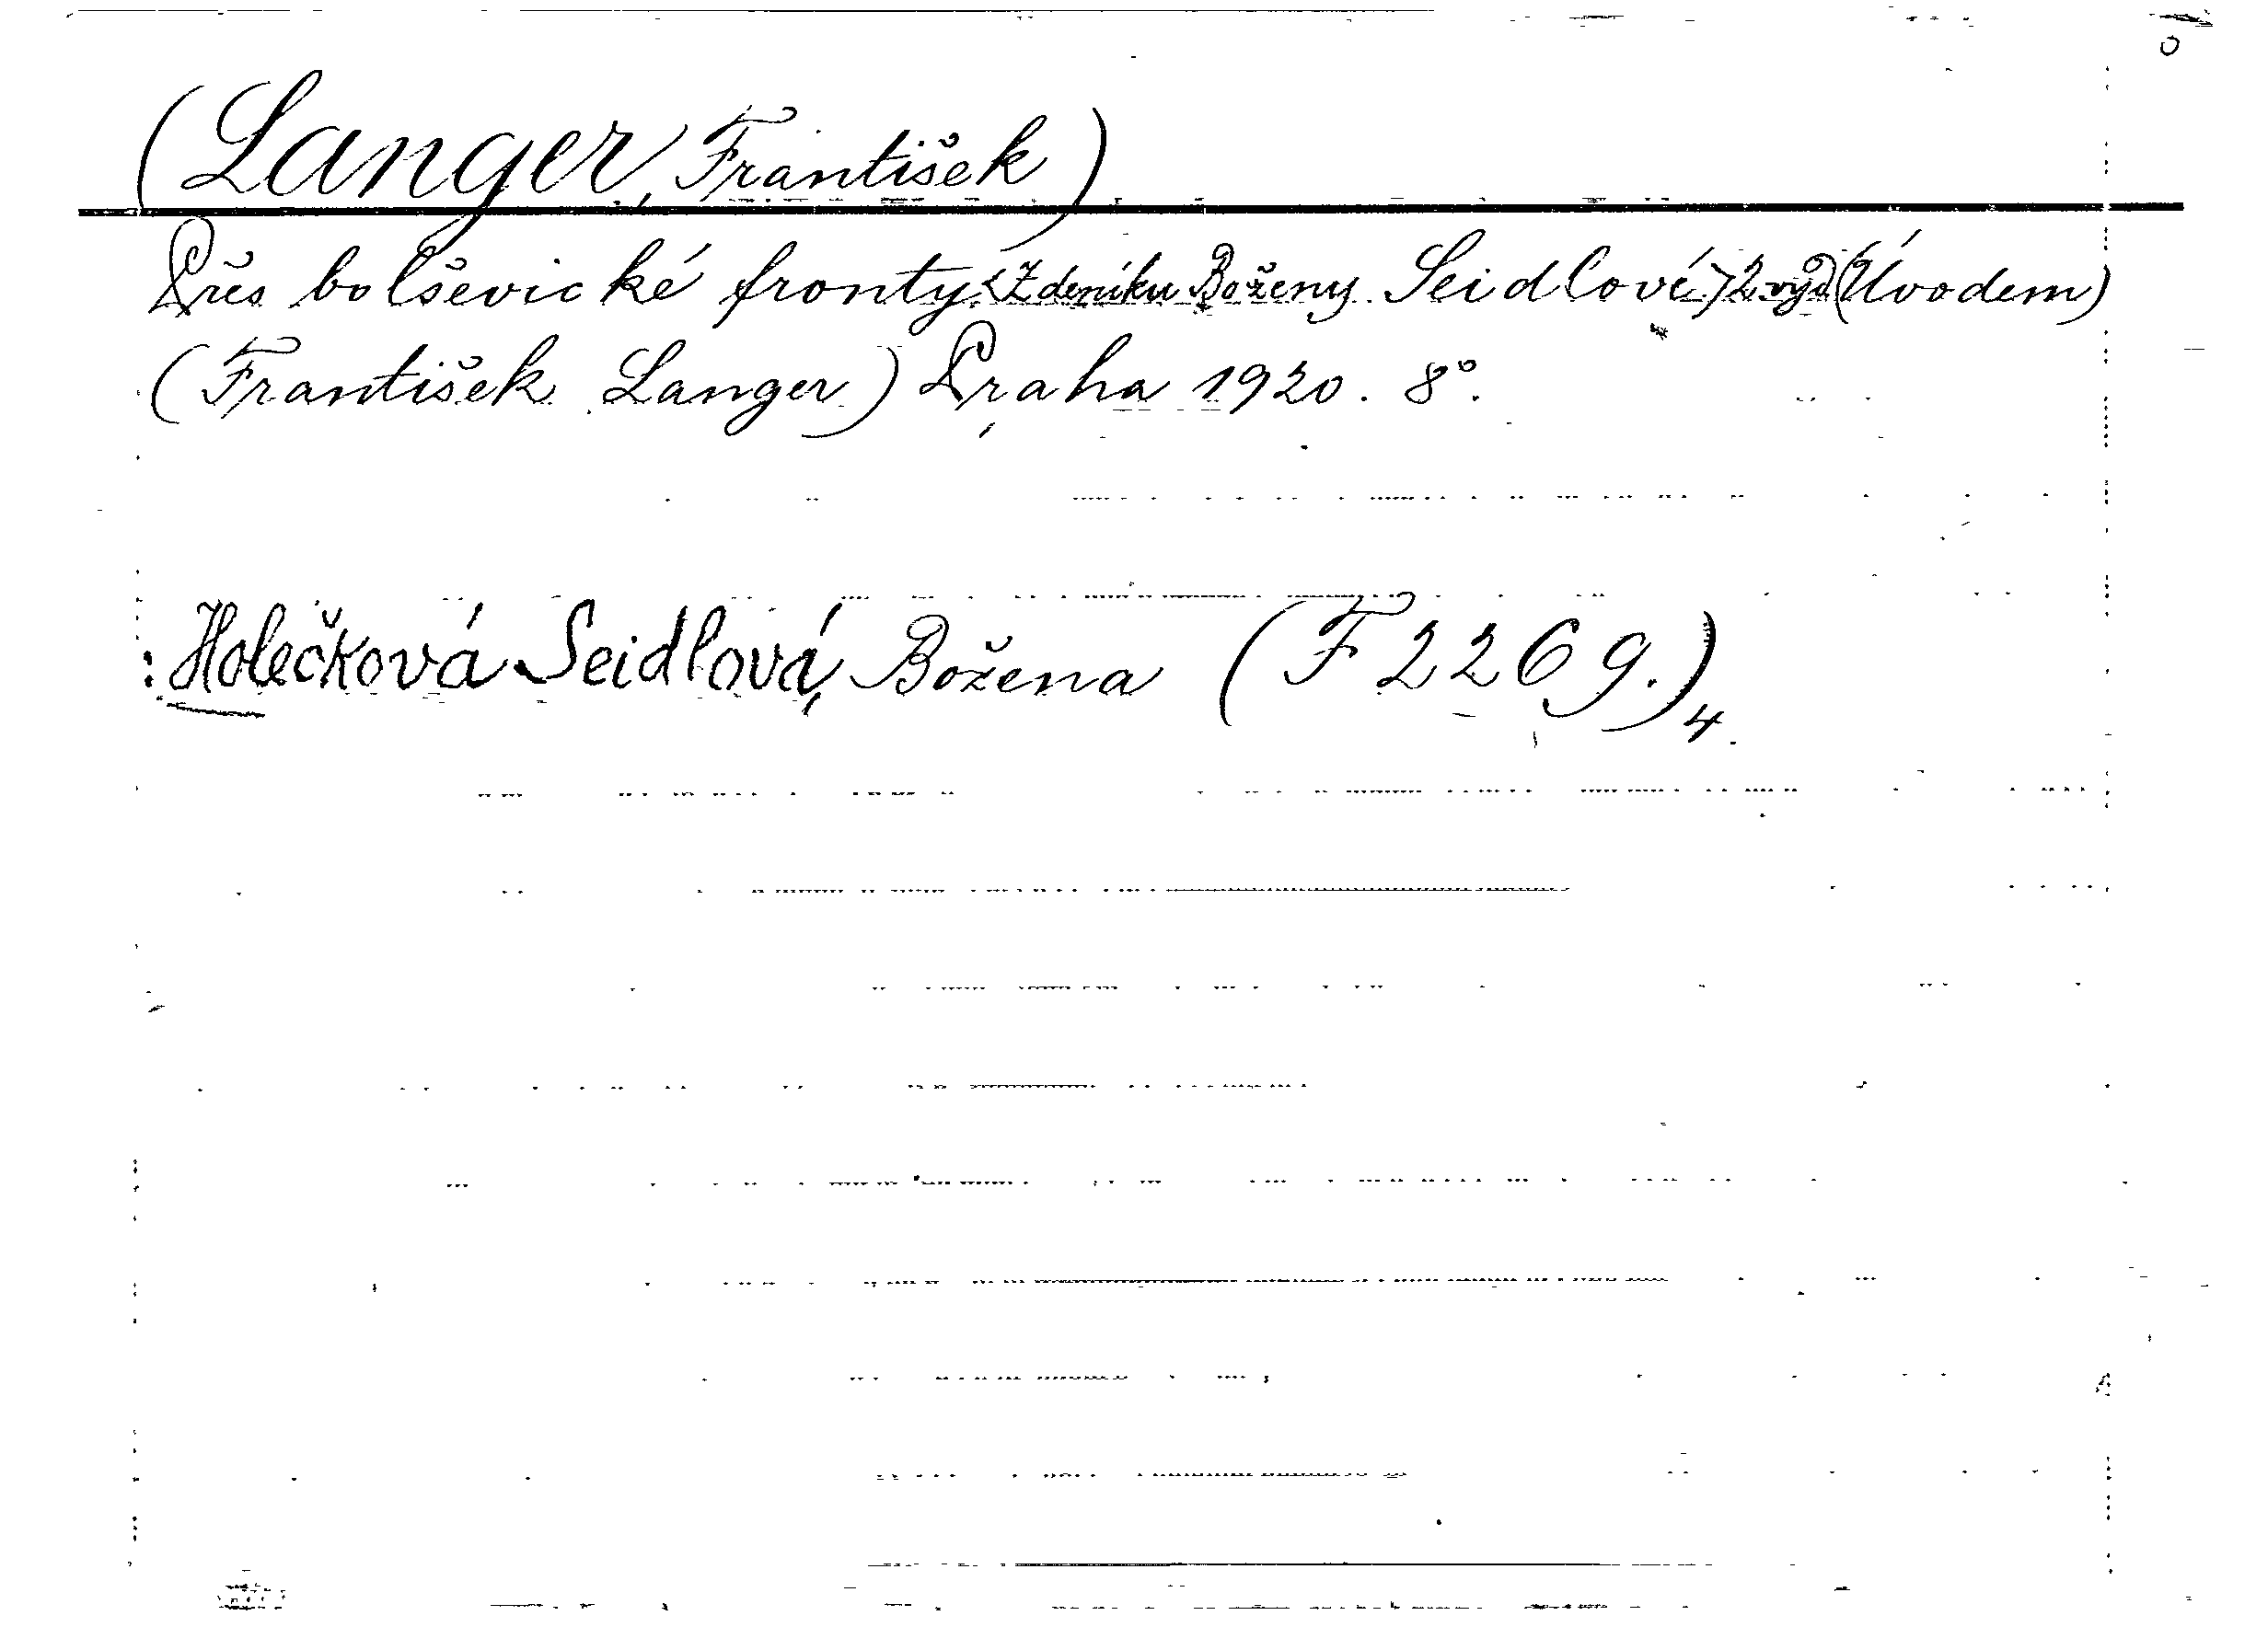 (Langer, František)
Přes bolševické fronty. <Z deníku Boženy Seidlové> 2 vyd (Úvodem)
(František Langer) Praha 1920. 8°.
: Holečková Seidlová, Božena (F 2269.)4